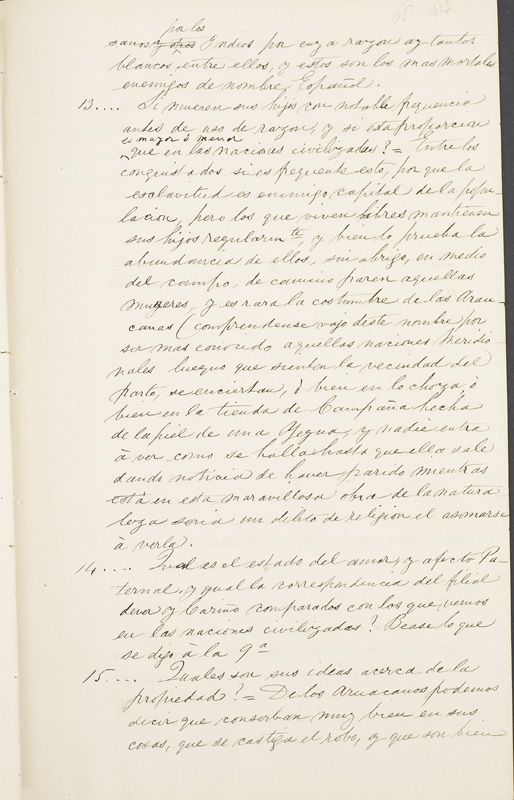 por los
sanos y otros Indios por cuya razon ay tantos
blancos entre ellos, y estos son los mas mortales
enemigos de nombre Español.
13.... Si mueren sus hijos con notable frequencia
antes de uso de razon, y si esta proporcion
es mayor ó menor
que en las naciones civilizadas? = Entre los
conquistados si es frequente esto, por que la
esclavitud es enemigo capital de la popu-
lacion, pero los que viven libres mantienen
sus hijos regularmte, y bien lo prueba la
abundancia de ellos, sin abrigo, en medio
del campo, de camino paren aquellas
mugeres, y es rara la costumbre de las Arau-
canas (comprendense vajo deste nombre por
ser mas conocido aquellas naciones Meridio-
nales luegus que sienten la vecindad del
parto, se encierran, ò bien en lo choza, ò
bien en la tienda de Campaña hecha
de la piel de una Yegua, y nadie entra
à ver como se halla hasta que ella sale
dando noticia de haver parido mientras
está en esta maravillosa obra de la natura-
leza seria un delito de religion el asomarse
à verla.
14.... Qual es el estado del amor, y afecto Pa-
ternal, y qual la correspondencia del filial
dever y Cariño comparados con los que vemos
en las naciones civilizadas? Vease lo que
se dijo à la 9a
15.... Quales son sus ideas acerca de la
propiedad? = De los Aruacanos podemos
decir que conserban muy bien en sus
cosas, que se castiga el robo, y que son bien